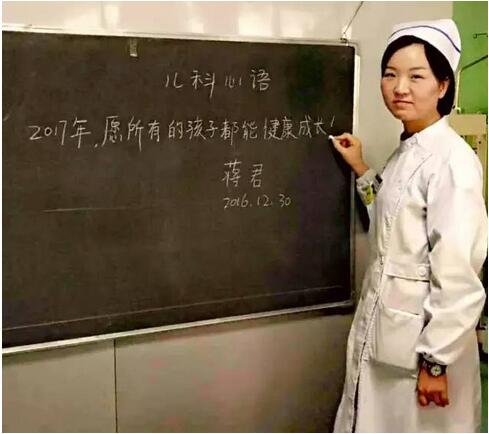 儿科心语
2017年,愿所有的孩子都能健康成长!
蒋君
2016.12.30